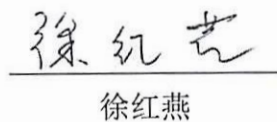 徐红燕
徐红燕